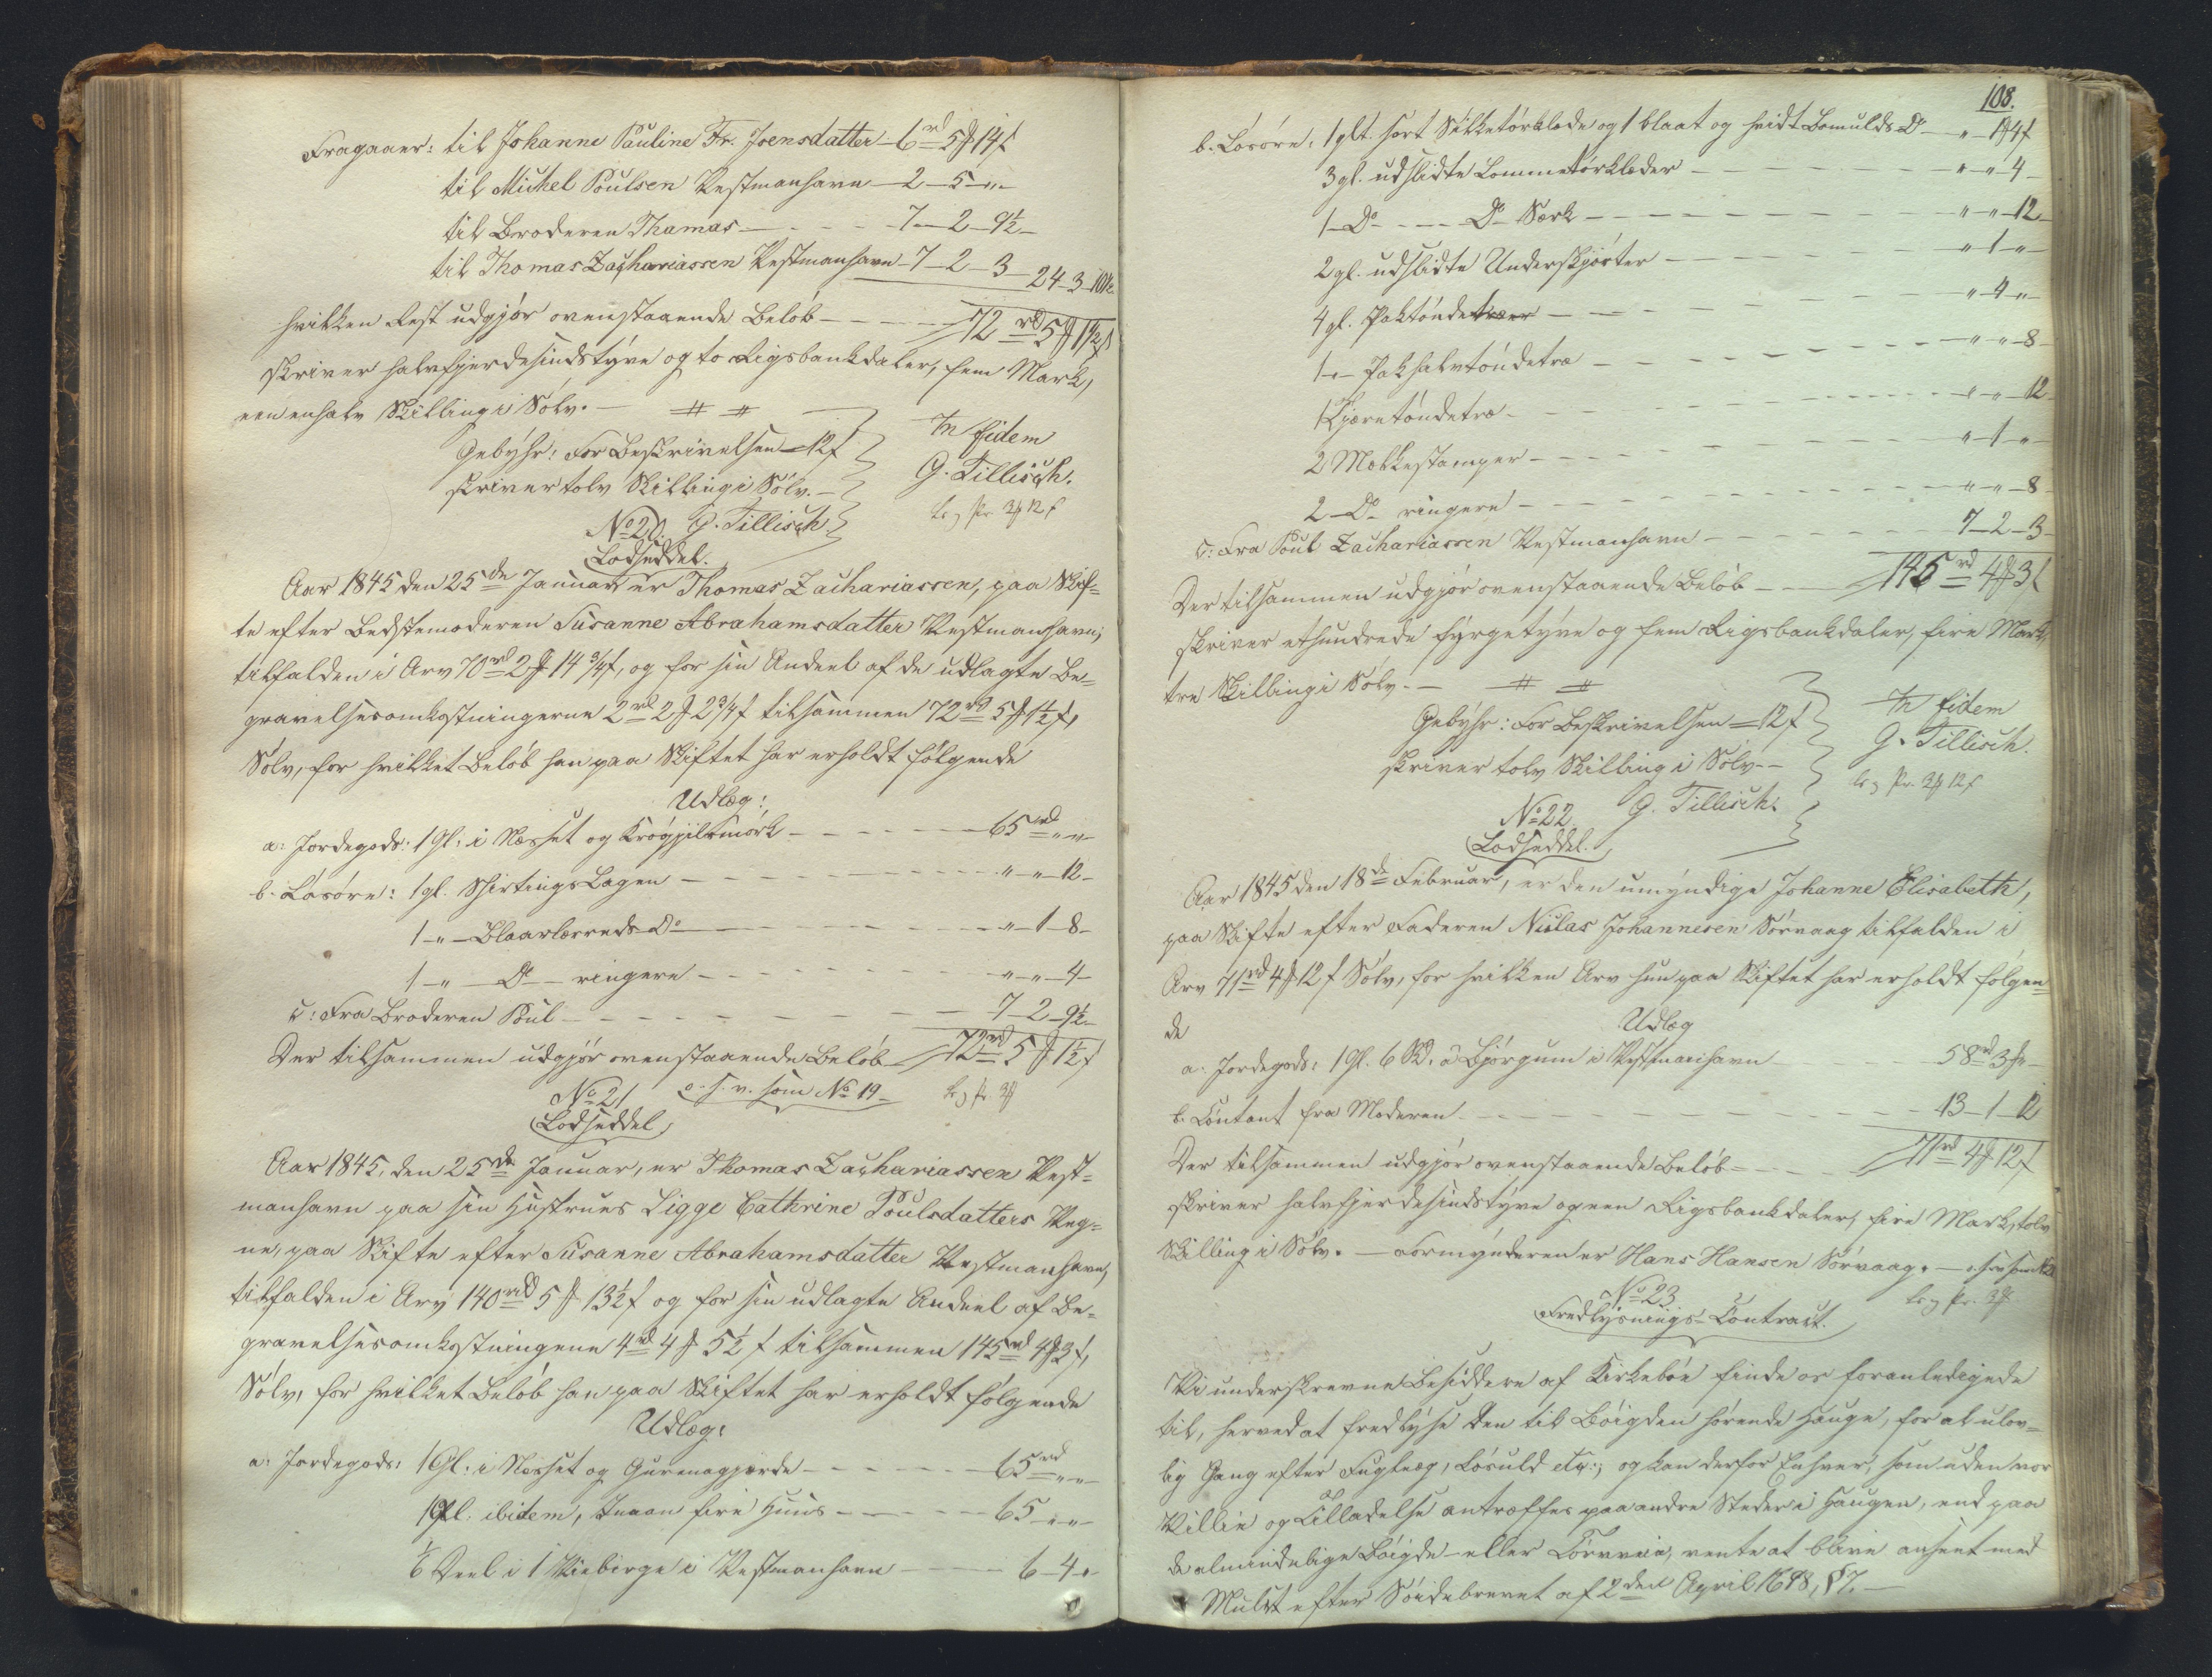 Fragaaer: til Johanne Pauline Fr. Joensdatter - 6 rd 5 ₻ 14 ſ
til Michel Poulsen Vestmanhavn - 2 - 5 - „ -
til Broderen Thomas - - - - 7 - 2 - 9½ -
til Thomas Zachariassen Vestmanhavn - 7 - 2 - 3 - 24 - 3 - 10½
hvilken Rest udgjør ovenstaaende Beløb - - - - 72 rd 5 ₻ 1½ ſ
skriver halvfjerdesindstyve og to Rigsbankdaler, fem Mark,
een en halv Skilling i Sølv. -
Gebyhr: For Beskrivelsen = 12 ſ In fidem
skriver tolv Skilling i Sølv. - G. Tillisch.
G. Tillisch
No 20.
Lodseddel.
Aar 1845 den 25de Januar er Thomas Zachariassen, paa Skif-
te efter Bedstemoderen Susanne Abrahamsdatter Vestmanhavn,
tilfalden i Arv 70 rd 2 ₻ 14 ¾ ſ, og for sin Andeel af de udlagte Be-
gravelsesomkostningerne 2 rd 2 ₻ 2¾ ſ tilsammen 72 rd 5 ₻ 1½ ſ,
Sølv, for hvilket Beløb han paa Skiftet har erholdt følgende
Udlæg:
a: Jordegods: 1 Gl. i Nesset og Krogjilsmørk - - - - 65 rd „ „ -
b. Løsøre: 1 gl. Skirtings Lagen - - - - „ - „ - 12 -
1 - „ - Blaarlærreds Do - - - - „ - 1 - 8 -
1 - „ - Do - ringere - - - - „ - „ - 4 -
c: Fra Broderen Poul - - - - 7 - 2 - 9½ -
Der tilsammen udgjør ovenstaaende Beløb - 72 rd 5 ₻ 1½ ſ
o. s. v. som No 19 -
No 21
Lodseddel
Aar 1845, den 25de Januar, er Thomas Zachariassen Vest-
manhavn paa sin Hustrues Sigge Cathrine Poulsdatters Veg-
ne, paa Skifte efter Susanne Abrahamsdatter Vestmanhavn,
tilfalden i Arv 140 rd 5 ₻ 13½ ſ og for sin udlagte Andeel af Be-
gravelsesomkostningerne 4 rd 4 ₻ 5½ ſ tilsammen 145 rd 4 ₻ 3 ſ,
Sølv, for hvilket Beløb han paa Skiftet har erholdt følgende
Udlæg:
a: Jordegods: 1 Gl. i Nesset og Gurenagjærde - - - - 65 rd „ „ -
1 Gl. ibidem, Innan fire Huus - - - - 65 - „ - „ -
1/6 Deel i 1 Kiebirge i Vestmanhavn - - - - 6 - 4 - „
108.
b. Løsøre: 1 glt. sort Silketørklæde og 1 blaat og hvidt Bomulds Do - „ - 1 ₻ 4 ſ
3 gl. udslidte Lommetørklæder - - - - „ - „ - 4 -
1 - Do - - - Do Særk - - - - „ - „ - 12 -
2 gl. udslidte Underskjørter - - - - „ - 1 - „ -
4 gl. Paktøndetræer - - - - „ - 4 - „ -
1 - „ - Pakhalvtøndetræ - - - - „ - „ - 8 -
1 Tjæretøndetræ - - - - „ - „ - 12 -
2 Melkestamper - - - - „ - 1 - „ -
2 - Do - ringere - - - - „ - „ - 8 -
c: Fra Poul Zachariassen Vestmanhavn - - - - 7 - 2 - 3 -
Der tilsammen udgjør ovenstaaende Beløb - - 145 rd 4 ₻ 3 ſ
skriver ethundrede fyrgetyve og fem Rigsbankdaler, fire Mark,
tre Skilling i Sølv. -
Gebyhr: For Beskrivelsen = 12 ſ In fidem
skriver tolv Skilling i Sølv. - G. Tillisch.
G. Tillisch.
No 22.
Lodseddel.
Aar 1845 den 18de Februar, er den umyndige Johanne Elisabeth,
paa Skifte efter Faderen Niclas Johannesen Sörvaag tilfalden i
Arv 71 rd 4 ₻ 12 ſ Sølv, for hvilken Arv hun paa Skiftet har erholdt følgen-
de
Udlæg
a: Jordegods: 1 Gl. 6 Sk. á Bjørgum i Vestmanhavn - - 58 rd 3 ₻ „ -
b. Contant fra Moderen - - - - 13 - 1 - 12
Der tilsammen udgjør ovenstaaende Beløb - - - - 71 rd 4 ₻ 12 ſ
skriver halvfjerdesindstyve og een Rigsbankdaler, fire Mark, tolv
Skilling i Sølv. - Formynderen er Hans Hansen Sörvaag. -
No 23
Fredlysnings-Contract.
Vi underskrevne Besiddere af Kirkebøe finde os foranledigede
til, herved at fredlyse den til Bøigden hørende Hauge, for al ulov-
lig Gang efter Fugleæg, Løsuld etc:; og kan derfor Enhver, som uden vor
Villie og Tilladelse antræffes paa andre Steder i Haugen, end paa
de almindelige Bøigde- eller Tørvveie, vente at blive anseet med
Mulct efter Søidebrevet af 2den April 1698, § 7. -